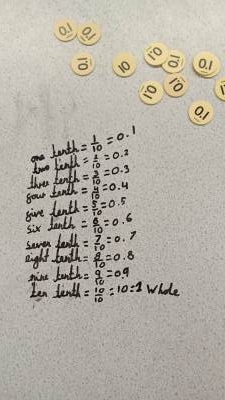 0.1
0.1
0.1
0.1
one tenth = 1/10 = 0.1
two tenth = 2/10 = 0.2
three tenth = 3/10 = 0.3
four tenth = 4/10 = 0.4
five tenth = 5/10 = 0.5
six tenth = 6/10 = 0.6
seven tenth = 7/10 = 0.7
eight tenth = 8/10 = 0.8
nine tenth = 9/10 = 0.9
ten tenth = 10/10 = 10=1 Whole